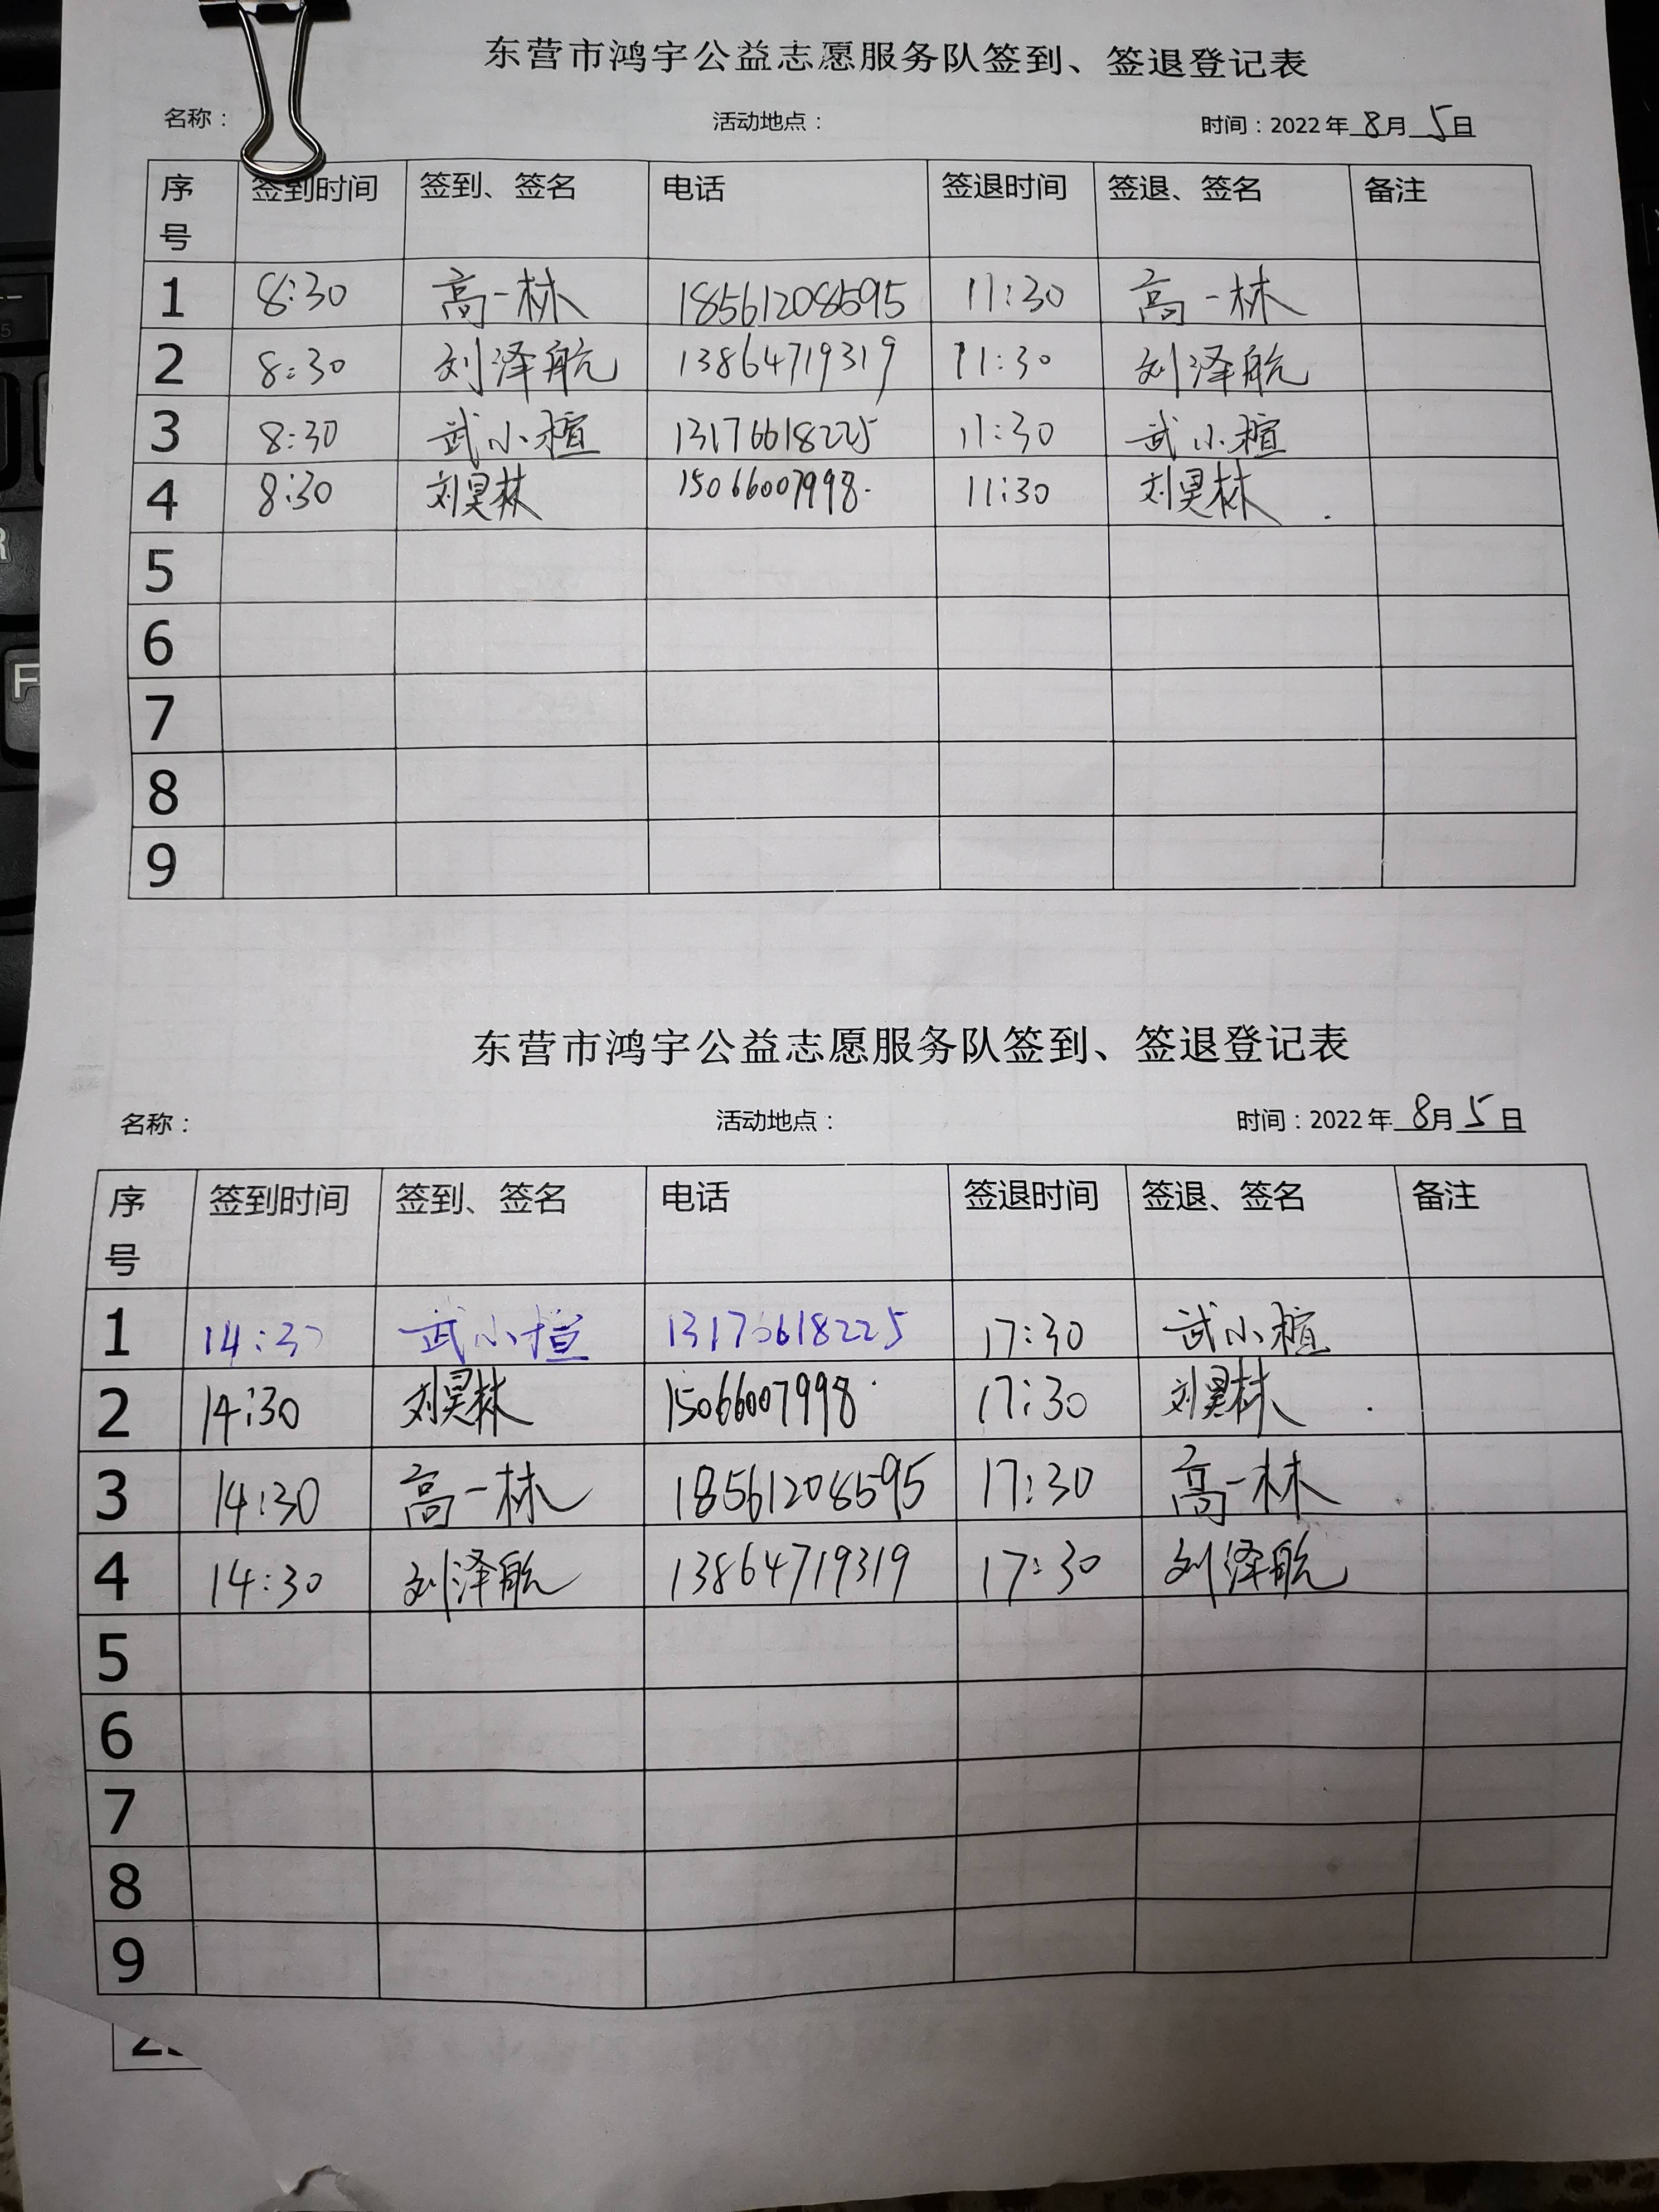 东营市鸿宇公益志愿服务队签到、签退登记表
名称： 活动地点： 时间：2022年8月5日
序号 签到时间 签到、签名 电话 签退时间 签退、签名 备注
1 8:30 高一林 18561208595 11:30 高一林
2 8:30 刘泽航 13864719319 11:30 刘泽航
3 8:30 武小楦 13176618225 11:30 武小楦
4 8:30 刘昊林 15066007998 11:30 刘昊林
5
6
7
8
9
东营市鸿宇公益志愿服务队签到、签退登记表
名称： 活动地点： 时间：2022年8月5日
序号 签到时间 签到、签名 电话 签退时间 签退、签名 备注
1 14:30 武小楦 13176618225 17:30 武小楦
2 14:30 刘昊林 15066007998 17:30 刘昊林
3 14:30 高一林 18561208595 17:30 高一林
4 14:30 刘泽航 13864719319 17:30 刘泽航
5
6
7
8
9